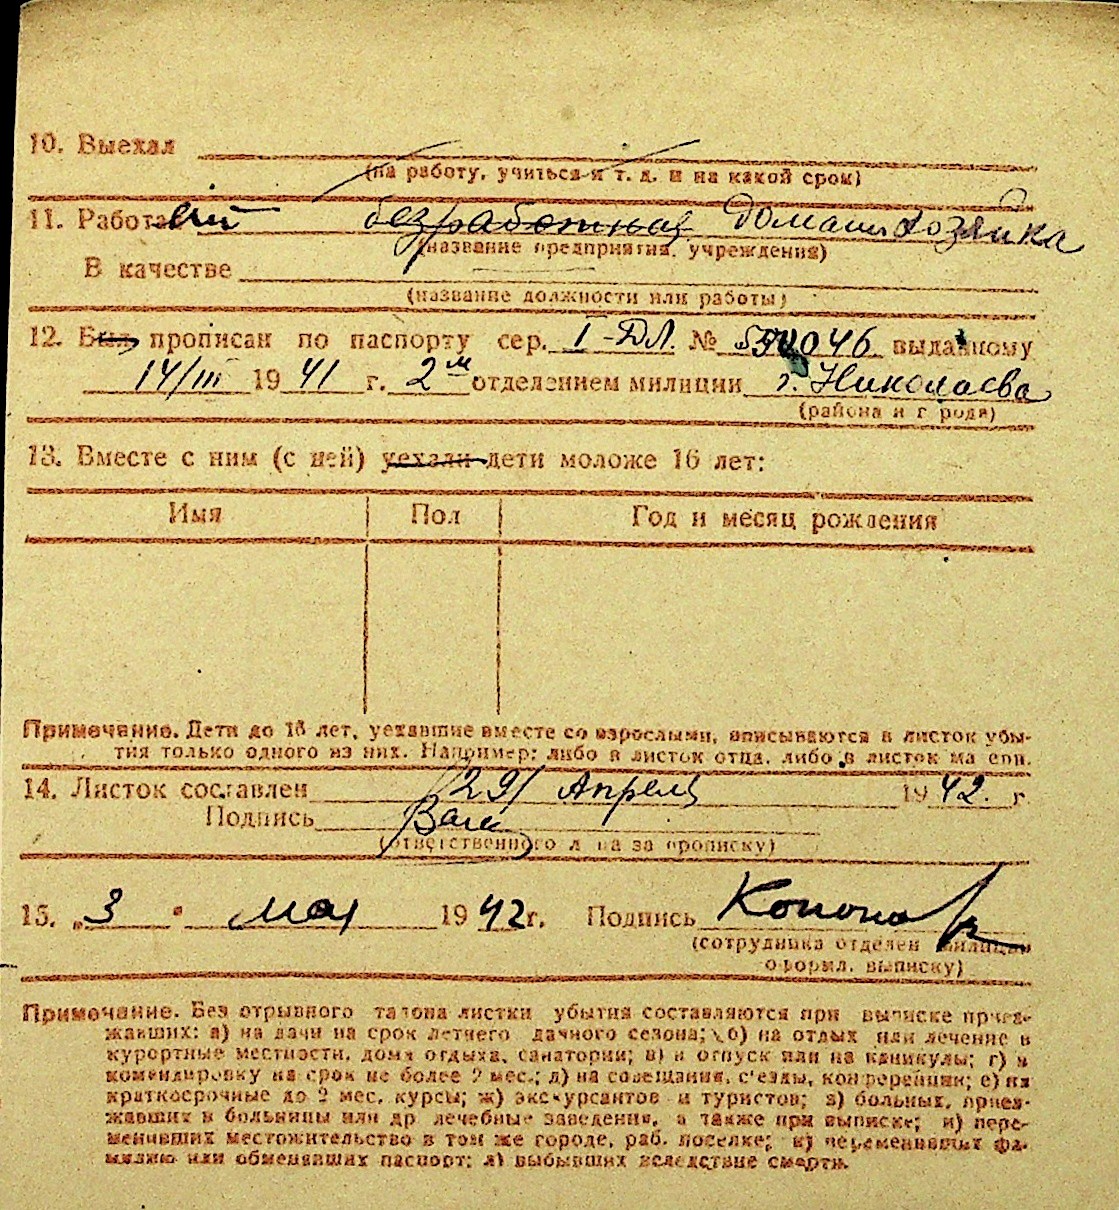 10. Выехал
(на работу, учиться и т. д. и на какой срок)
11. Работа безработная Домашн хозяйка
(название предприятия, учреждения)
В качестве
(название должности или работы)
12. Был прописан по паспорту сер. I-ДЛ. № выданному
14/III 1941 г. 2м отделением милиции г. Николаева
(района и города)
13. Вместе с ним (с ней) уехали дети моложе 16 лет:
Имя Пол Год и месяц рождения
Примечание. Дети до 16 лет, уехавшие вместе со взрослыми, вписываются в листок убы-
тия только одного из них. Например: либо в листок отца, либо в листок матери.
14. Листок составлен 29/ Апреля 1942. г.
Подпись
(ответственного лица за прописку)
15. „3 " мая 1942г. Подпись
(сотрудника отделен милиции
оформл. выписку)
Примечание. Без отрывного талона листки убытия составляются при выписке приез-
жавших: а) на дачи на срок летнего дачного сезона; б) на отдых или лечение в
курортные местности, дома отдыха, санатории; в) в отпуск или на каникулы; г) в
командировку на срок не более 2 мес.; д) на совещания, с'езды, конференции; е) на
краткосрочные до 2 мес. курсы; ж) экскурсантов и туристов; з) больных, приез-
жавших в больницы или др лечебные заведения, а также при выписке; и) пере-
менивших местожительство в том же городе, раб. поселке; к) переменивших фа-
милию или обменявших паспорт; л) выбывших вследствие смерти.